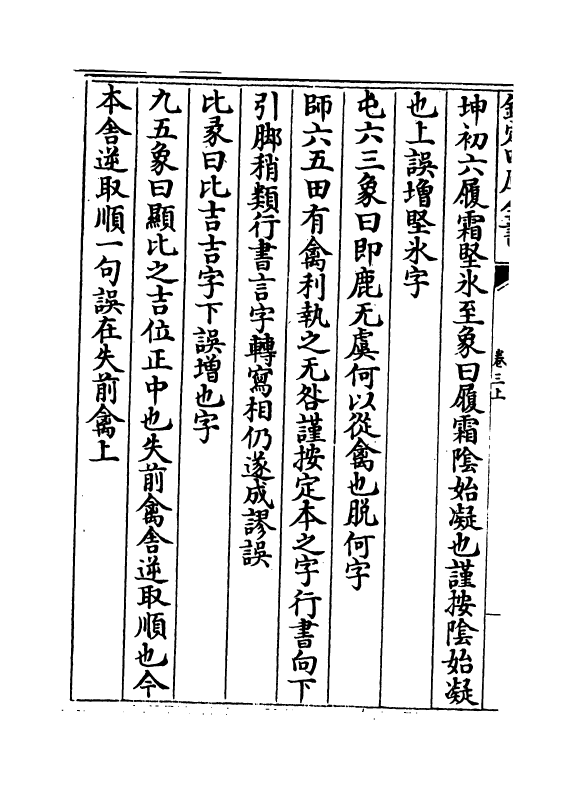 欽定四庫全書
卷三上
坤初六履霜堅氷至象曰履霜陰始凝也謹按陰始凝
也上誤增堅氷字
屯六三象曰即鹿无虞何以從禽也脱何字
師六五田有禽利執之无咎謹按定本之字行書向下
引脚稍類行書言字轉寫相仍遂成謬誤
比彖曰比吉吉字下誤增也字
九五象曰顯比之吉位正中也失前禽舍逆取順也今
本舍逆取順一句誤在失前禽上